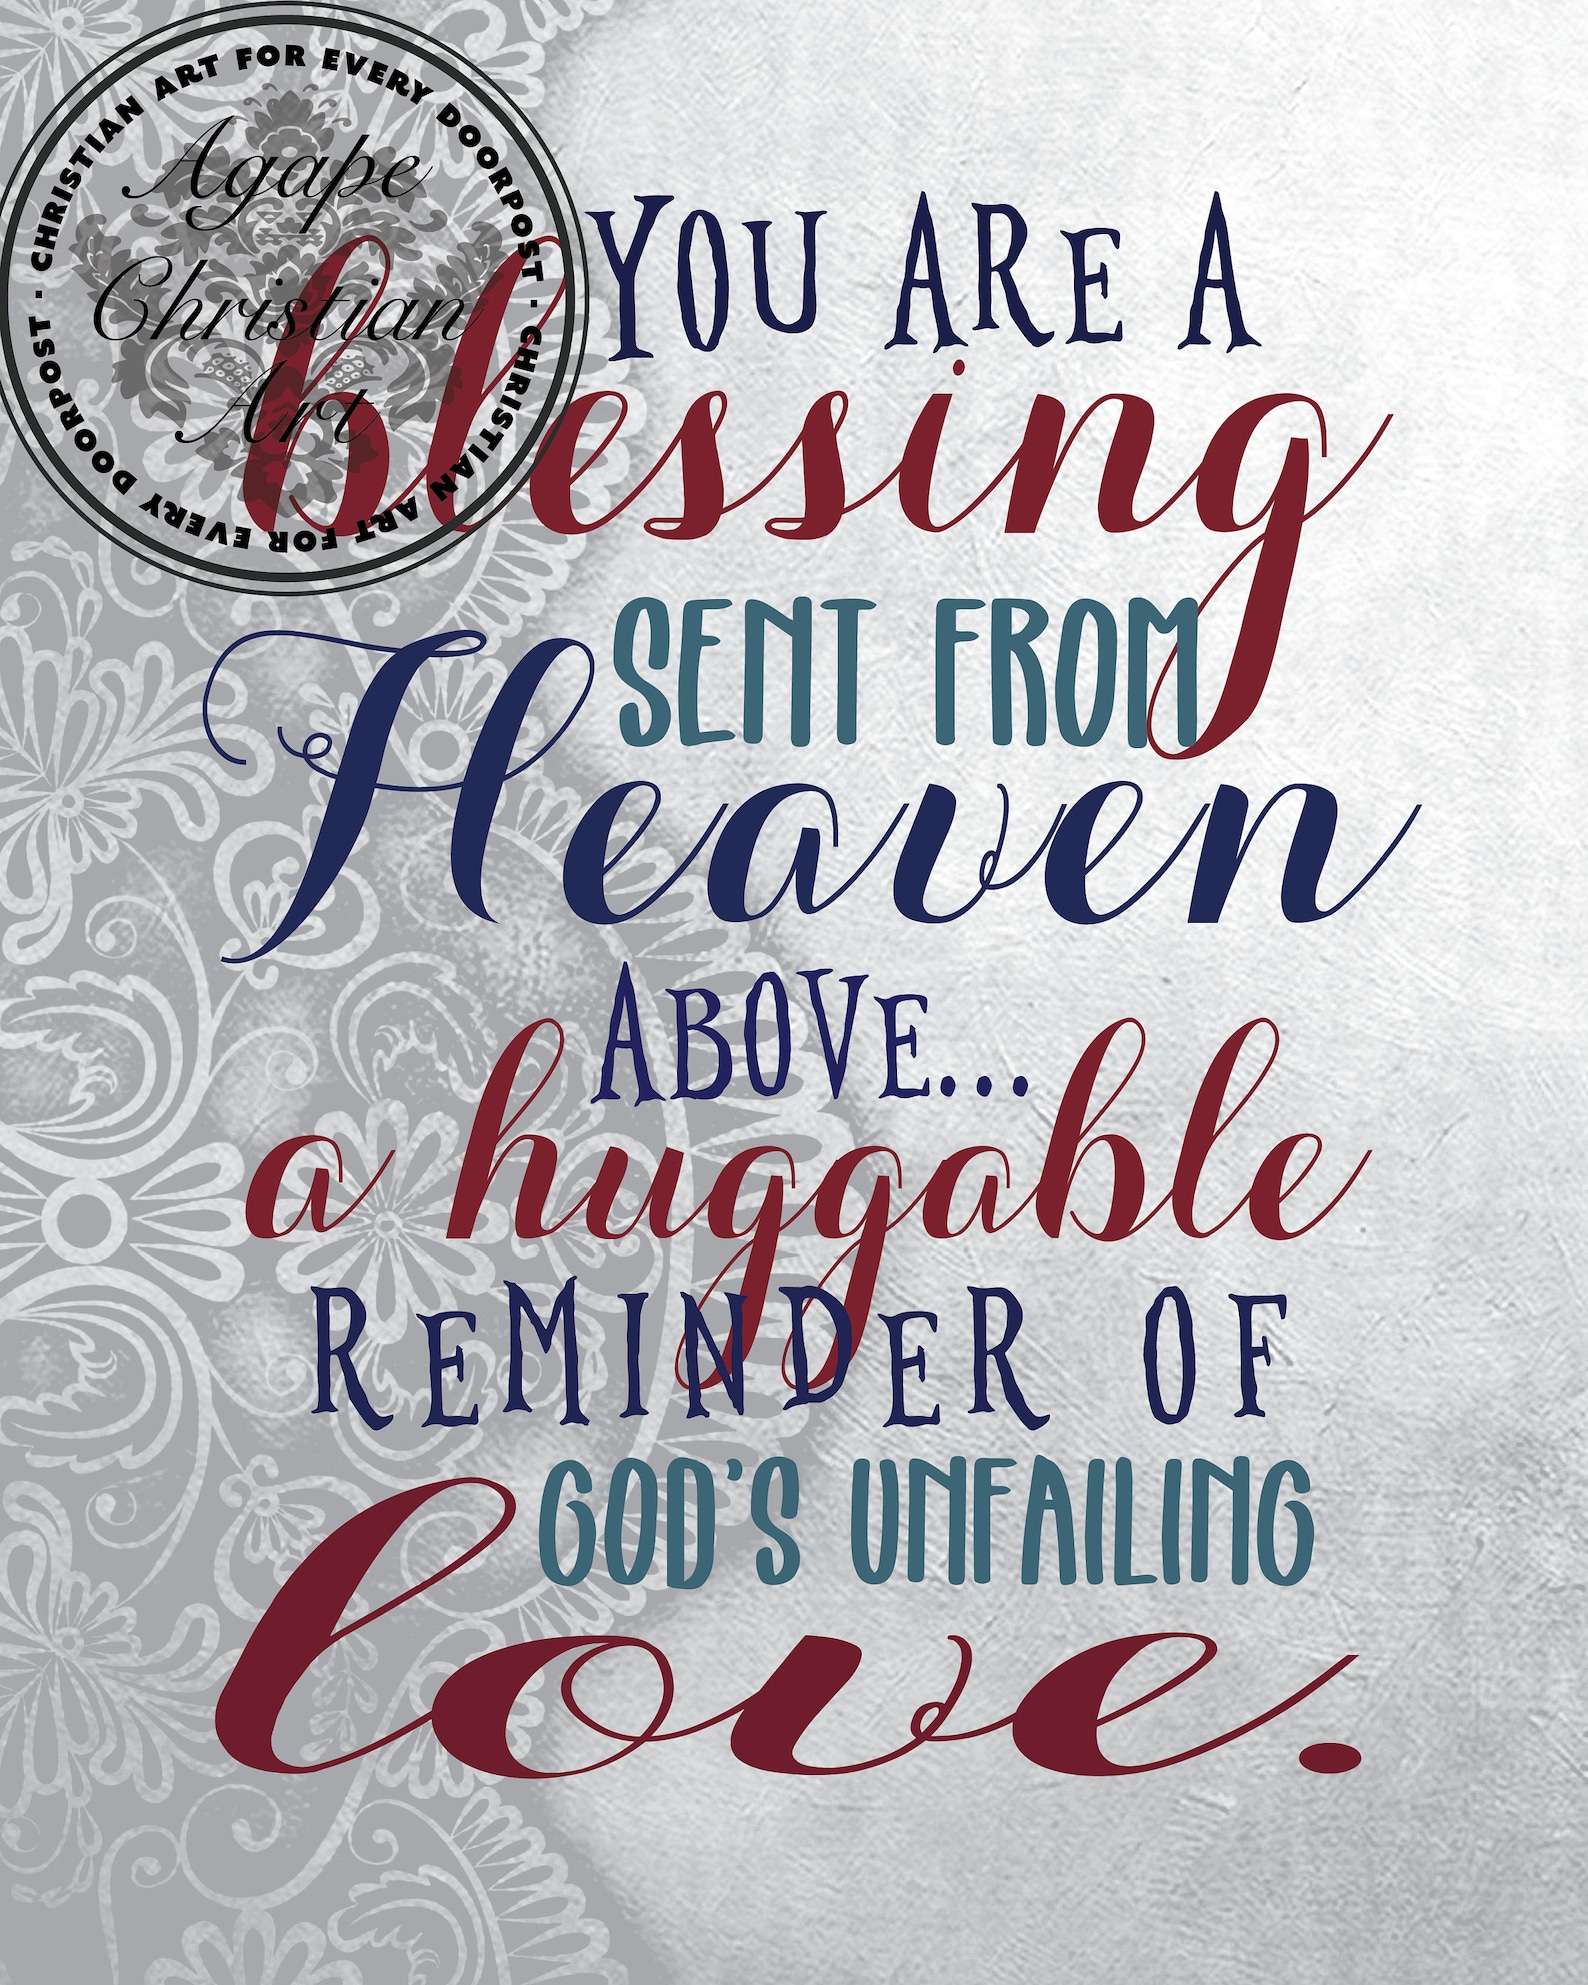 CHRISTIAN ART FOR EVERY DOORPOST · CHRISTIAN ART FOR EVERY DOORPOST ·
Agape
Christian
Art
YOU ARE A
blessing
SENT FROM
Heaven
ABOVE...
a huggable
REMINDER OF
GOD'S UNFAILING
love.